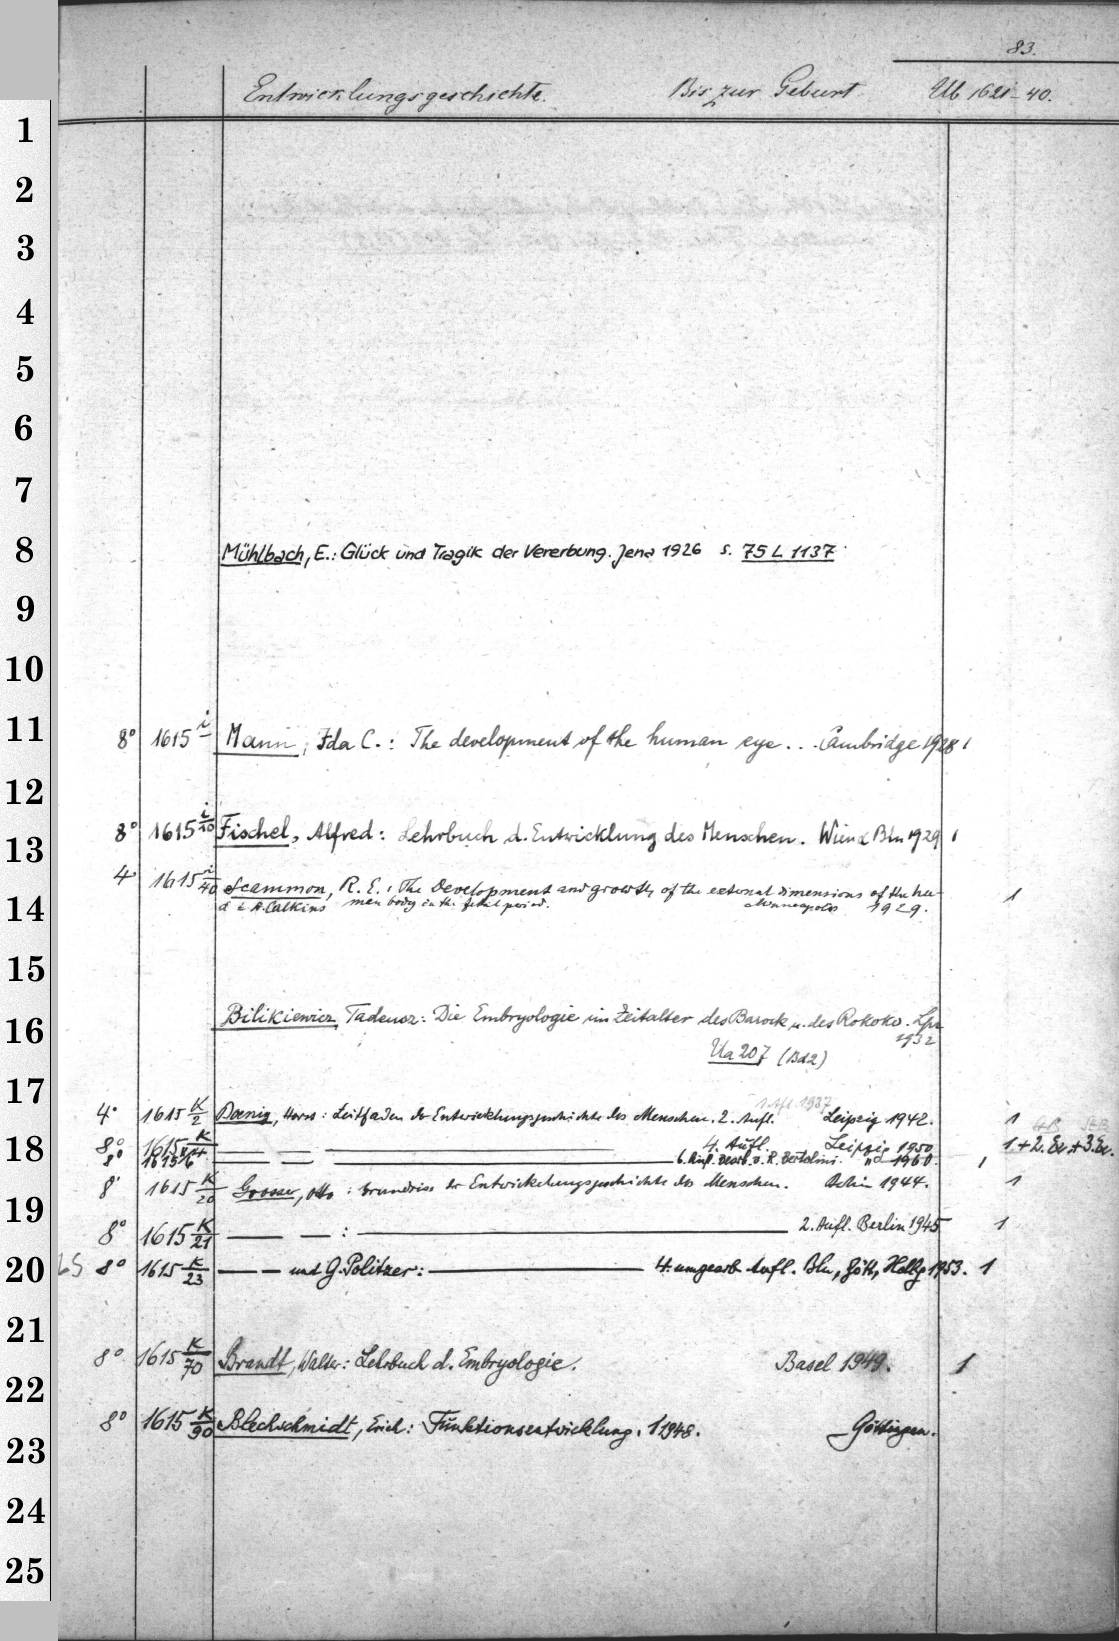 83.
Entwicklungsgeschichte. Bis zur Geburt Ub 1621-40.
1
2
3
4
5
6
7
8 Mühlbach, E.: Glück und Tragik der Vererbung. Jena 1926 s. 75 L 1137
9
10
11 8° 1615 i Mann, Ida C.: The development of the human eye... Cambridge 1928 1
12
8° 1615 i/10 Fischel, Alfred: Lehrbuch d. Entwicklung des Menschen. Wien & Bln 1929 1
13
4 1615 i/40 Scammon, R. E.: The Development and growth of the external dimensions of the hu-
14 & A. Calkins man body in the fetal period. Minneapolis 1929. 1
15
16 Bilikiewicz, Tadeusz: Die Embryologie im Zeitalter des Barock u. des Rokoko. Lpz
1932
Ua 207 (Bd 2)
17
1. Afl. 1937
4° 1615 K/2 Boenig, Horst: Leitfaden der Entwicklungsgeschichte des Menschen. 2. Aufl. Leipzig 1942. 1
18 8° 1615 K/4 — — — 4. Aufl. Leipzig 1950 1+2.Ex.+3.Ex.
8° 1615 K/6 — — — 6. Aufl. bearb. v. R. Bertolini. 1960 1
8° 1615 K/20 Grosser, Otto: Grundriss der Entwickelungsgeschichte des Menschen. Berlin 1944. 1
19
8° 1615 K/21 — — : — 2. Aufl. Berlin 1945 1
20 LS 8° 1615 K/23 — — und G. Politzer: — 4. umgearb. Aufl. Bln, Gött, Hdlbg 1953. 1
21
8° 1615 K/70 Brandt, Walter: Lehrbuch d. Embryologie. Basel 1949. 1
22
8° 1615 K/90 Blechschmidt, Erich: Funktionsentwicklung. 1 1948. Göttingen.
23
24
25